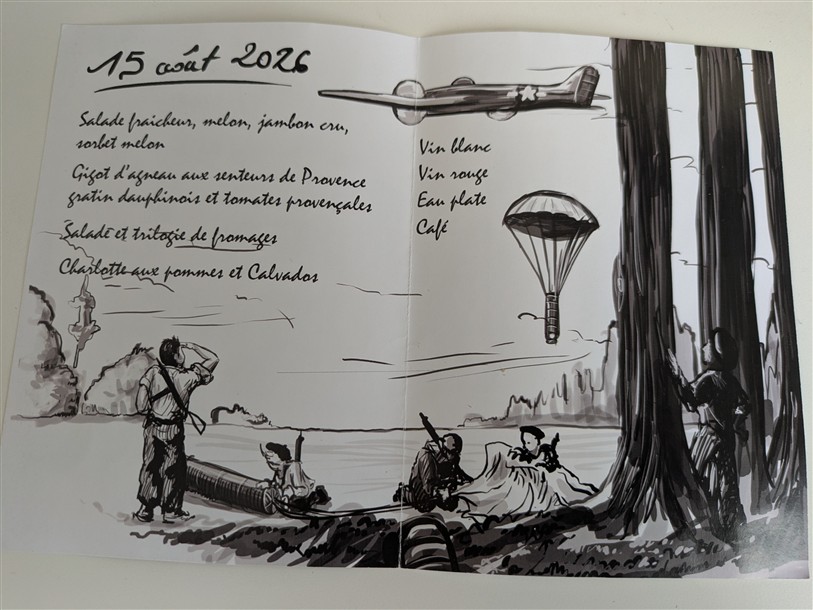 15 août 2026
Salade fraicheur, melon, jambon cru,
sorbet melon
Gigot d'agneau aux senteurs de Provence
gratin dauphinois et tomates provençales
Salade et trilogie de fromages
Charlotte aux pommes et Calvados
Vin blanc
Vin rouge
Eau plate
Café